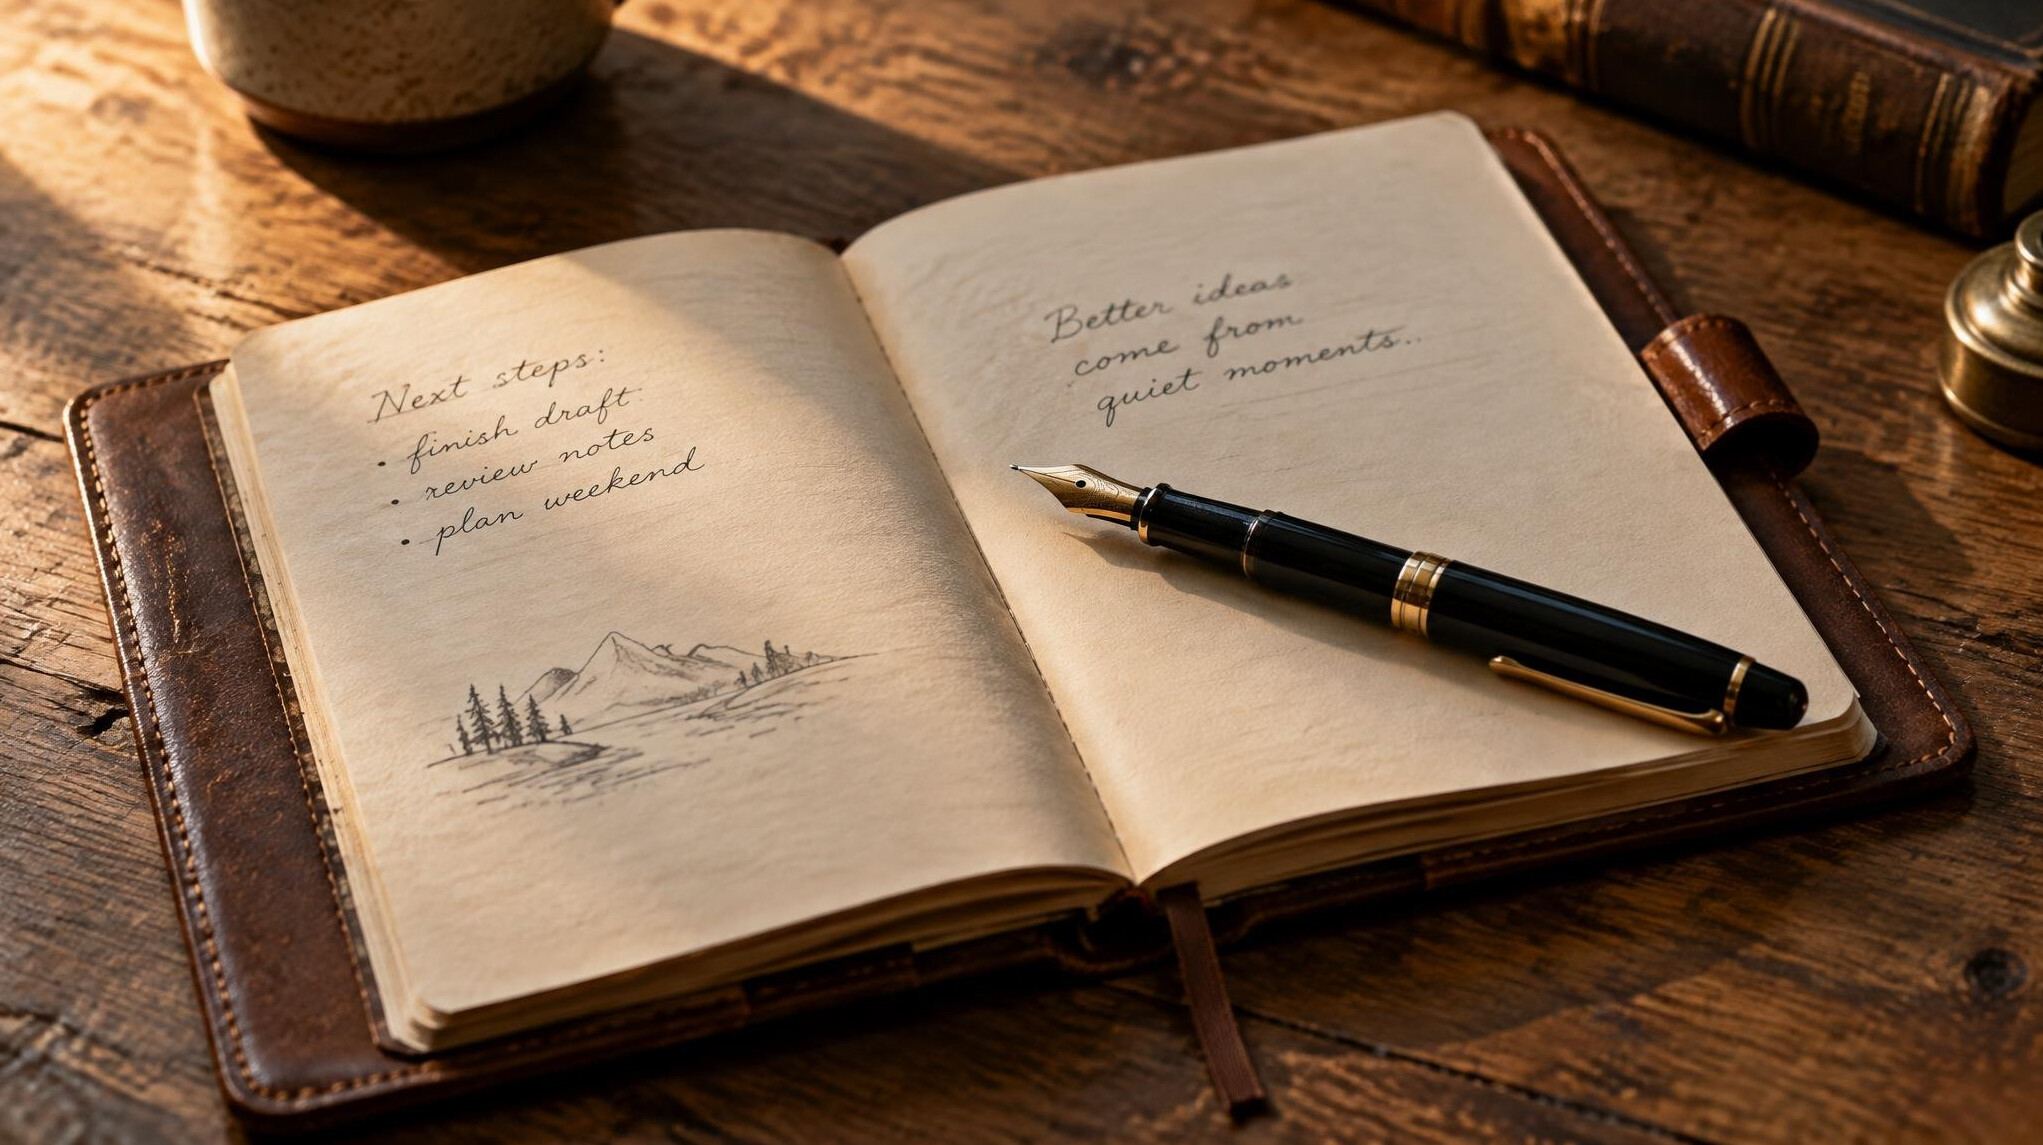 Next steps:
• finish draft.
• review notes
• plan weekend
Better ideas
come from
quiet moments..